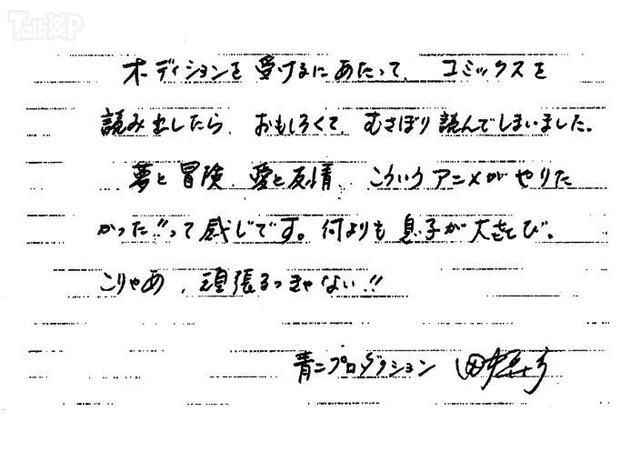 TalkOP
オーディションを受けるにあたって、コミックスを
読み出したら、おもしろくて、むさぼり読んでしまいました。
夢と冒険、愛と友情、こういうアニメがやりた
かった!!って感じです。何よりも息子が大喜び。
こりゃあ、頑張るっきゃない!!
青二プロダクション 田中